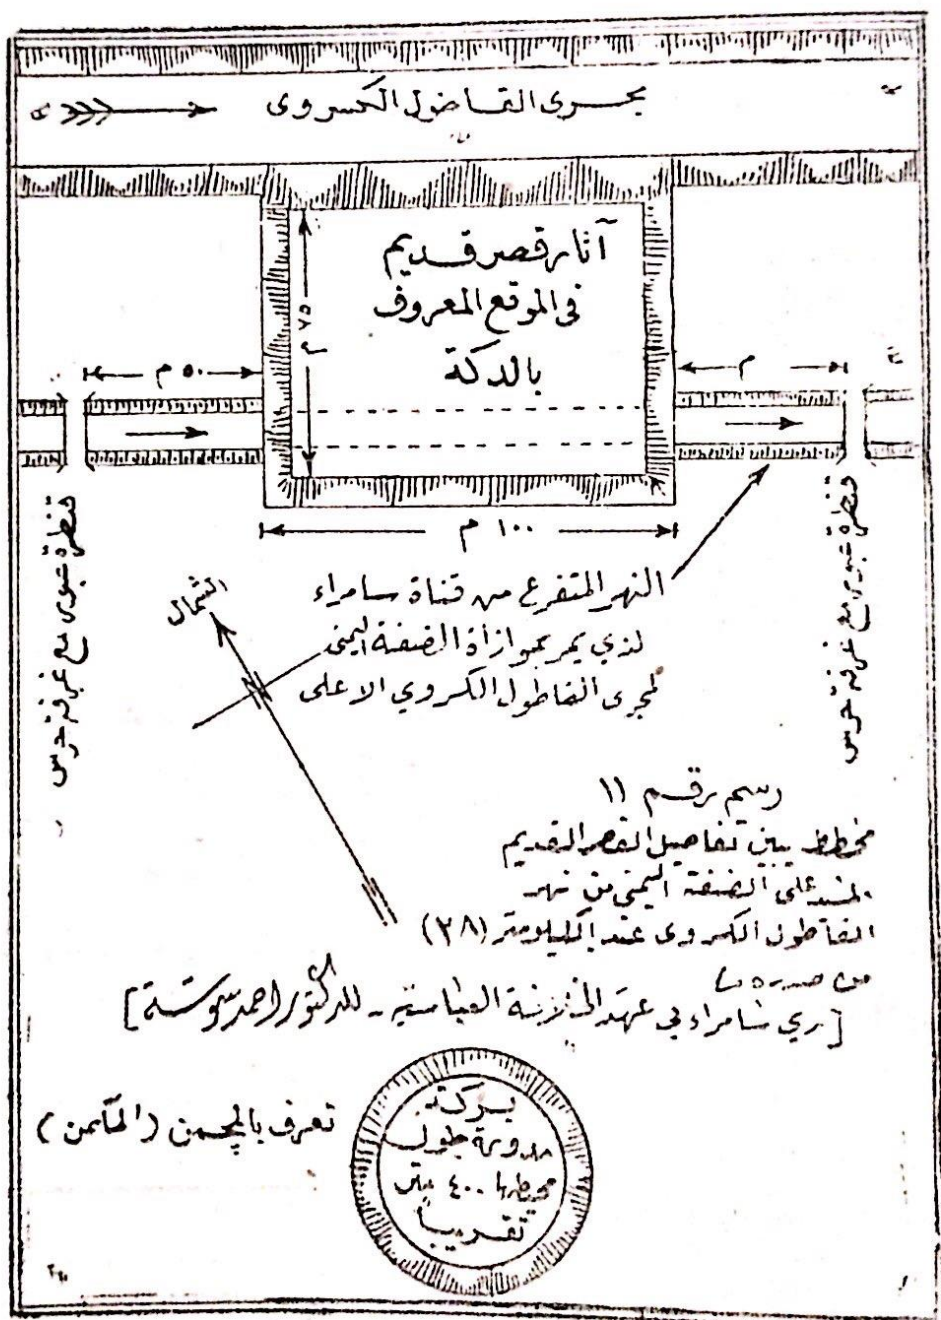 مجرى القاطول الكسروى
آثار قصر قديم
فى الموقع المعروف
بالدكة
٧٥ م
٥٠ م
م
١٠٠ م
قنطرة عبور مع غرفة حرس
قنطرة عبور مع غرفة حرس
الشمال
النهر المتفرع من قناة سامراء
لذي يمر بموازاة الضفة اليمنى
لمجرى القاطول الكسروي الاعلى
رسم رقم ١١
مخطط يبين تفاصيل القصر القديم
المشيد على الضفة اليمنى من نهر
القاطول الكسروى عند الكيلومتر (٢٨)
من صدره
[ري سامراء في عهد الخلافة العباسية - للدكتور احمد سوسة]
تعرف بالچمن (المكمن)
بركة
مدورة طول
محيطها ٤٠٠ متر
تقريباً